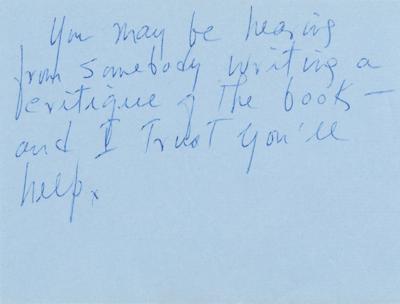 You may be hearing
from somebody writing a
critique of the book —
and I trust you'll
help.